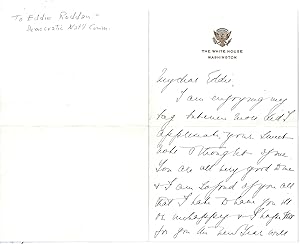 To Eddie Roddan -
Democratic Nat'l Comm.
THE WHITE HOUSE
WASHINGTON
My dear Eddie,
I am enjoying my
bag &
appreciate your sweet
note & thought of me
You are all very good to me
& I am so fond of you all
that I hate to have you ill
or unhappy & I hope that
for you the new year will